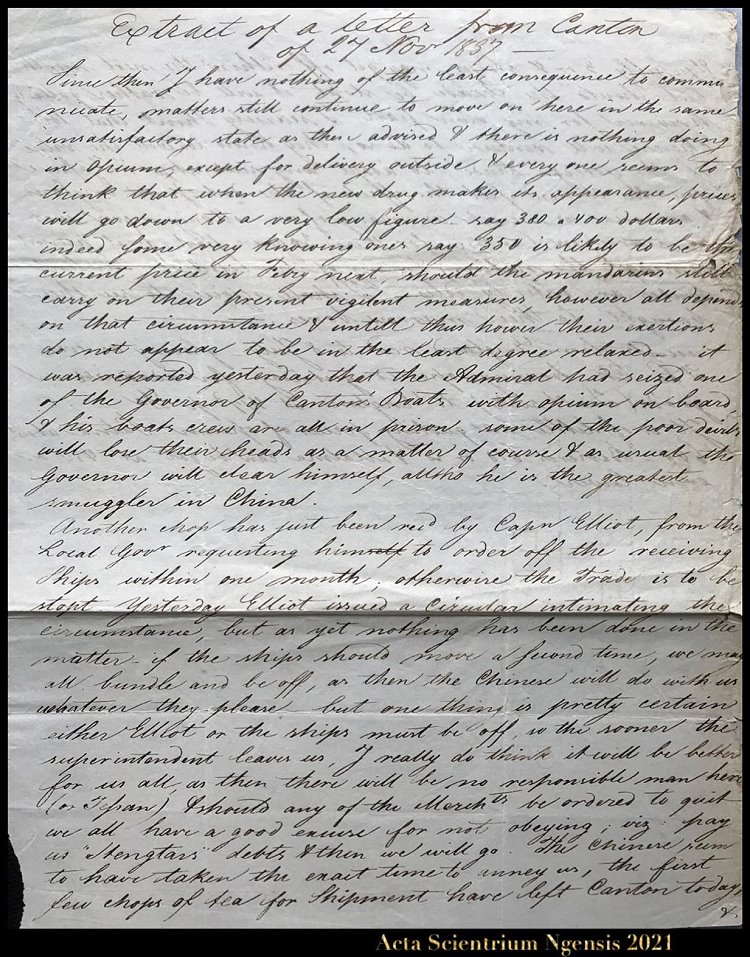 Extract of a letter from Canton
of 27 Nov 1837 —
Since then I have nothing of the least consequence to commu
nicate, matters still continue to move on here in the same
unsatisfactory state as then advised & there is nothing doing
in opium, except for delivery outside & every one seems to
think that when the new drug makes its appearance, prices
will go down to a very low figure – say 380 a 400 dollars
indeed some very knowing ones say 350 is likely to be the
current price in Febry next, should the mandarins still
carry on their present vigilent measures, however all depends
on that circumstance & untill this hower their exertions
do not appear to be in the least degree relaxed – it
was reported yesterday that the Admiral had seized one
of the Governor of Canton's Boats with opium on board,
& his boats crew are all in prison some of the poor devils
will lose their heads as a matter of course & as usual the
Governor will clear himself, altho he is the greatest
smuggler in China.
Another chop has just been recd by Capn Elliot, from the
Local Govr requesting himself to order off the receiving
Ships within one month, otherwise the Trade is to be
stopt Yesterday Elliot issued a circular intimating the
circumstance, but as yet nothing has been done in the
matter – if the ships should move a second time, we may
all bundle and be off, as then the Chinese will do with us
whatever they please but one thing is pretty certain
either Elliot or the ships must be off so the sooner the
superintendent leaves us, I really do think it will be better
for us all, as then there will be no responsible man here
(or Tepan) & should any of the Merchts be ordered to quit
we all have a good excuse for not obeying; viz: pay
us "Hengtais" debts & then we will go. The Chinese seem
to have taken the exact time to anney us, the first
few chops of tea for Shipment have left Canton today
&.
Acta Scientrium Ngensis 2021